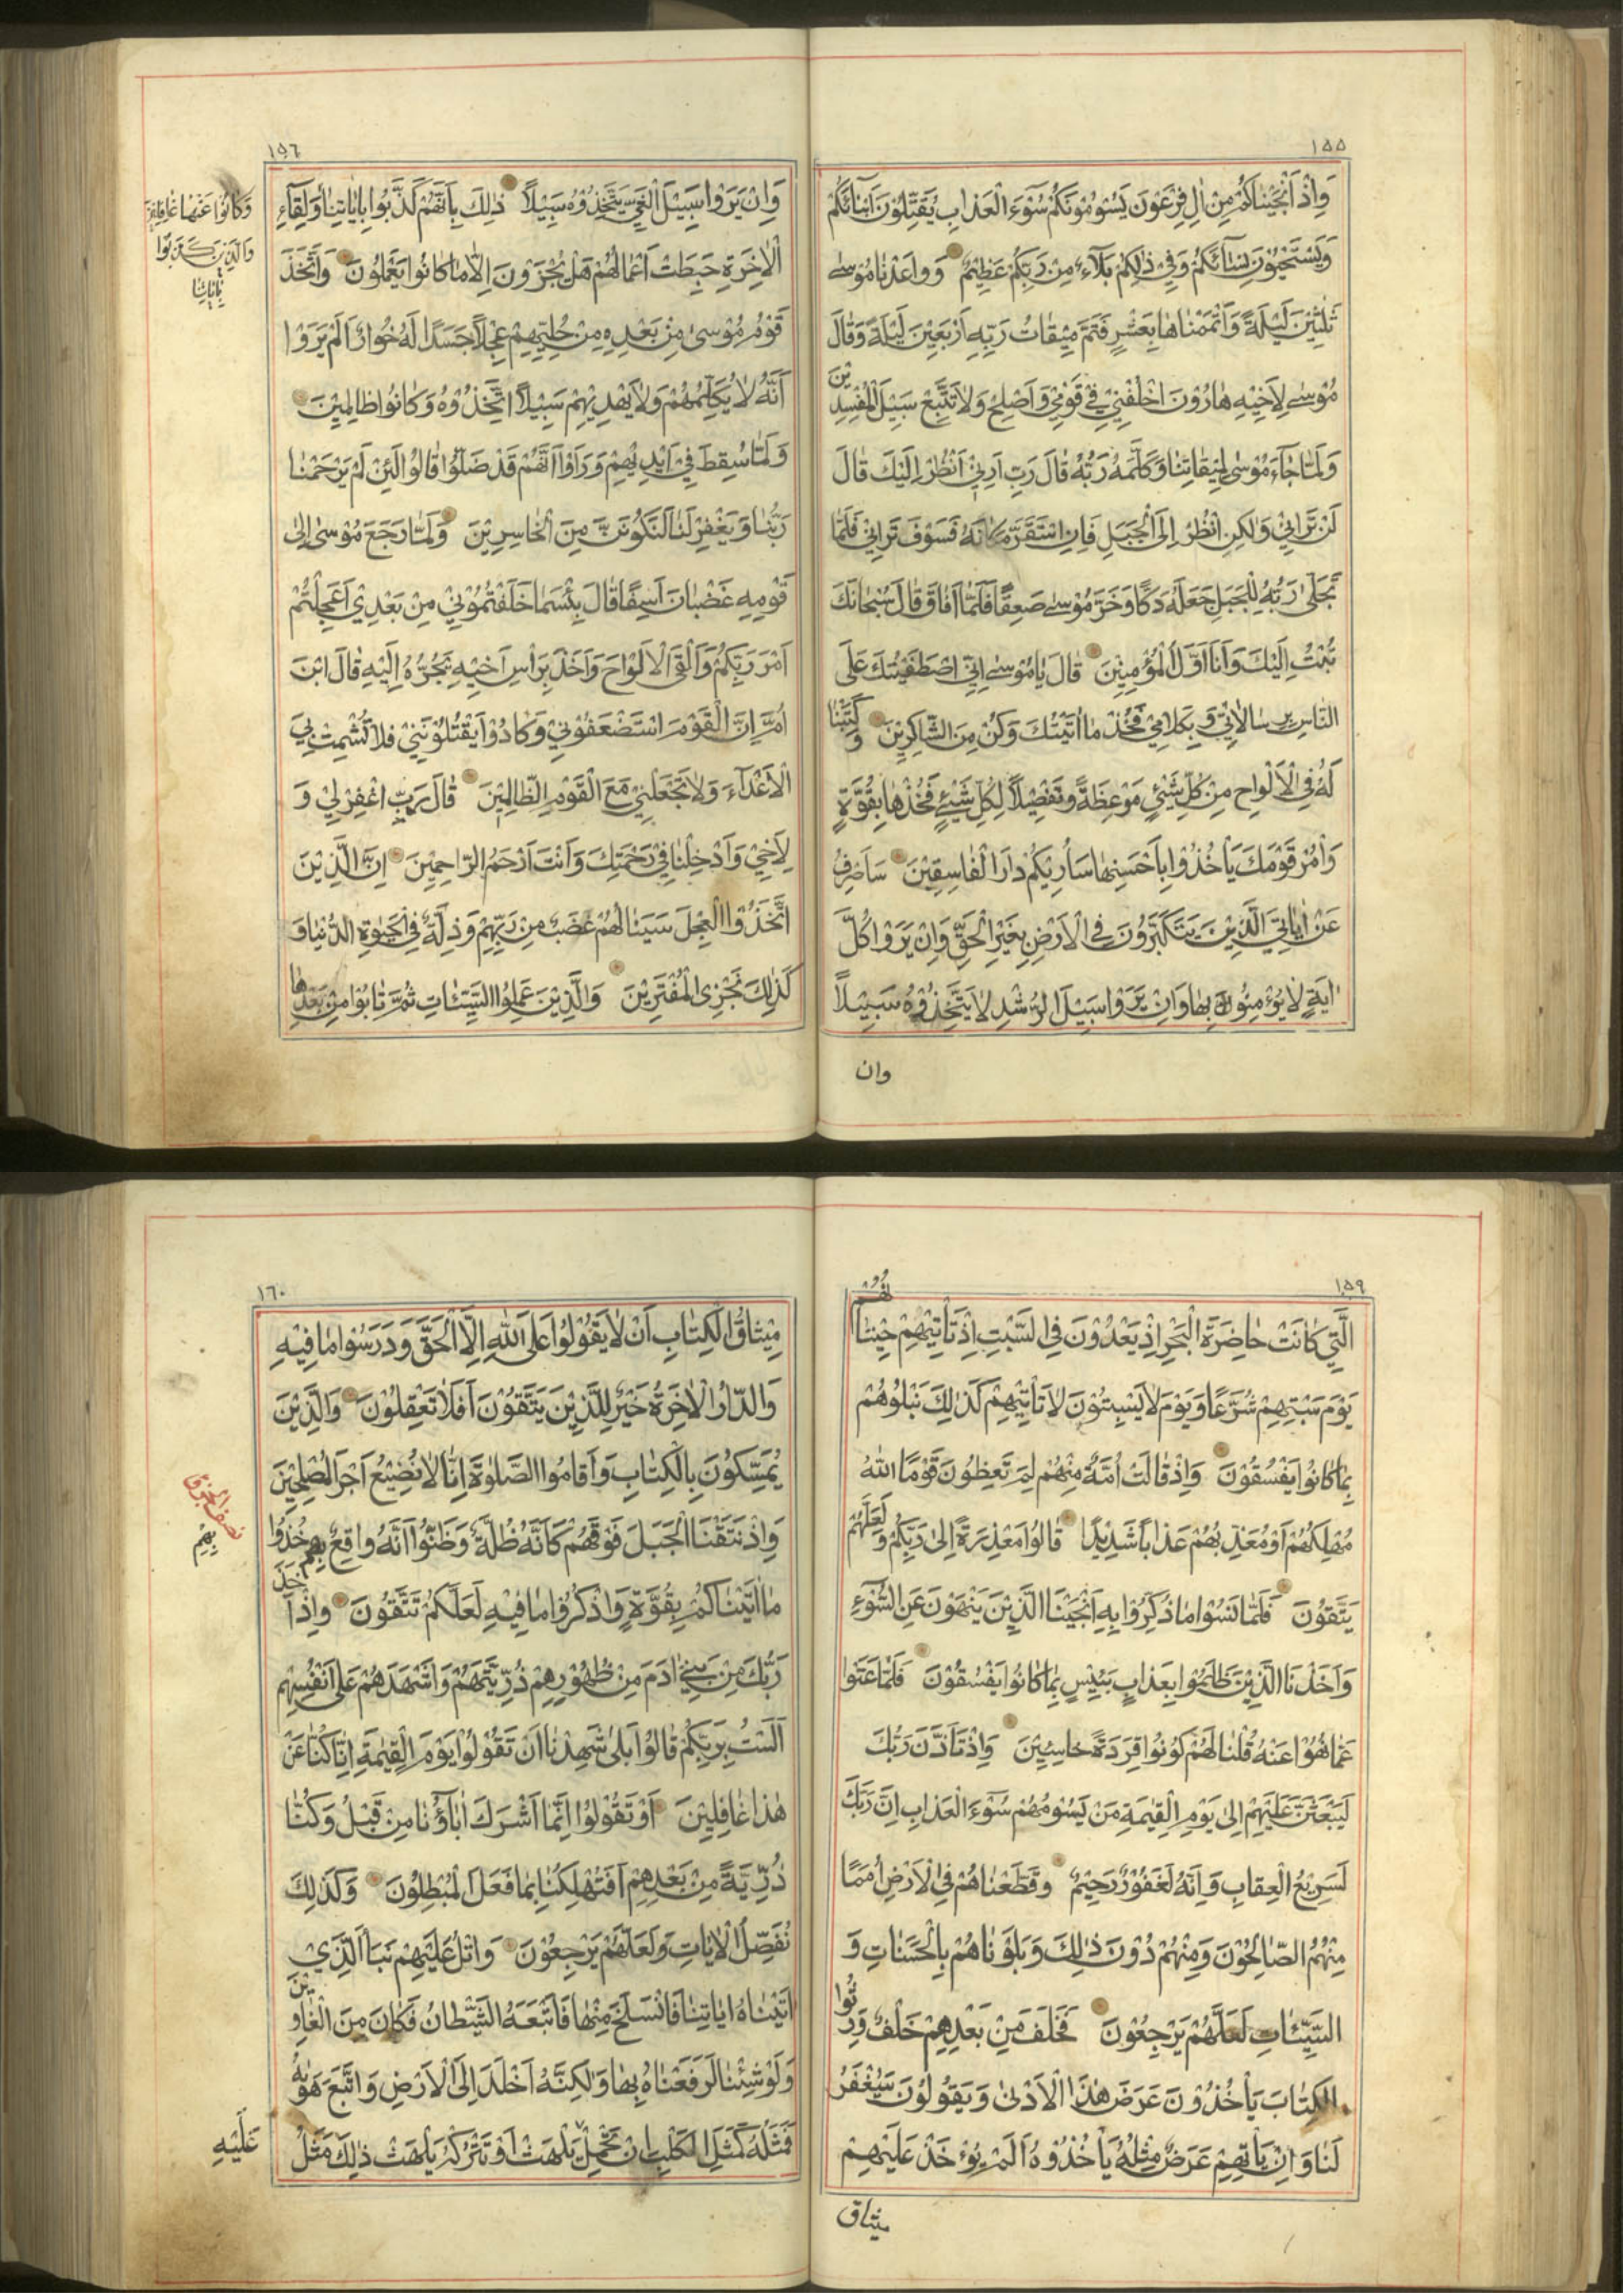 ١٥٥
وَاِذْ اَنْجَيْنَاكُمْ مِنْ اٰلِ فِرْعَوْنَ يَسُومُونَكُمْ سُوٓءَ الْعَذَابِ يُقَتِّلُونَ اَبْنَآئَكُمْ
وَيَسْتَحْيُونَ نِسَآئَكُمْ وَفِي ذٰلِكُمْ بَلَآءٌ مِنْ رَبِّكُمْ عَظِيمٌ وَوَاعَدْنَا مُوسٰى
ثَلٰثِينَ لَيْلَةً وَاَتْمَمْنَاهَا بِعَشْرٍ فَتَمَّ مِيقَاتُ رَبِّهِ اَرْبَعِينَ لَيْلَةً وَقَالَ
مُوسٰى لِاَخِيهِ هَارُونَ اخْلُفْنِي فِي قَوْمِي وَاَصْلِحْ وَلَا تَتَّبِعْ سَبِيلَ الْمُفْسِدِينَ
وَلَمَّا جَآءَ مُوسٰى لِمِيقَاتِنَا وَكَلَّمَهُ رَبُّهُ قَالَ رَبِّ اَرِنِي اَنْظُرْ اِلَيْكَ قَالَ
لَنْ تَرَانِي وَلٰكِنِ انْظُرْ اِلَى الْجَبَلِ فَاِنِ اسْتَقَرَّ مَكَانَهُ فَسَوْفَ تَرَانِي فَلَمَّا
تَجَلّٰى رَبُّهُ لِلْجَبَلِ جَعَلَهُ دَكًّا وَخَرَّ مُوسٰى صَعِقًا فَلَمَّا اَفَاقَ قَالَ سُبْحَانَكَ
تُبْتُ اِلَيْكَ وَاَنَا اَوَّلُ الْمُؤْمِنِينَ قَالَ يَا مُوسٰى اِنِّي اصْطَفَيْتُكَ عَلَى
النَّاسِ بِرِسَالَاتِي وَبِكَلَامِي فَخُذْ مَا اٰتَيْتُكَ وَكُنْ مِنَ الشَّاكِرِينَ وَكَتَبْنَا
لَهُ فِي الْاَلْوَاحِ مِنْ كُلِّ شَيْئٍ مَوْعِظَةً وَتَفْصِيلًا لِكُلِّ شَيْئٍ فَخُذْهَا بِقُوَّةٍ
وَأْمُرْ قَوْمَكَ يَأْخُذُوا بِاَحْسَنِهَا سَاُرِيكُمْ دَارَ الْفَاسِقِينَ سَاَصْرِفُ
عَنْ اٰيَاتِيَ الَّذِينَ يَتَكَبَّرُونَ فِي الْاَرْضِ بِغَيْرِ الْحَقِّ وَاِنْ يَرَوْا كُلَّ
اٰيَةٍ لَا يُؤْمِنُونَ بِهَا وَاِنْ يَرَوْا سَبِيلَ الرُّشْدِ لَا يَتَّخِذُوهُ سَبِيلًا
وان
١٥٦
وَاِنْ يَرَوْا سَبِيلَ الْغَيِّ يَتَّخِذُوهُ سَبِيلًا ذٰلِكَ بِاَنَّهُمْ كَذَّبُوا بِاٰيَاتِنَا وَلِقَآءِ
وَكَانُوا عَنْهَا غَافِلِينَ
وَالَّذِينَ كَذَّبُوا
بِاٰيَاتِنَا
الْاٰخِرَةِ حَبِطَتْ اَعْمَالُهُمْ هَلْ يُجْزَوْنَ اِلَّا مَا كَانُوا يَعْمَلُونَ وَاتَّخَذَ
قَوْمُ مُوسٰى مِنْ بَعْدِهِ مِنْ حُلِيِّهِمْ عِجْلًا جَسَدًا لَهُ خُوَارٌ اَلَمْ يَرَوْا
اَنَّهُ لَا يُكَلِّمُهُمْ وَلَا يَهْدِيهِمْ سَبِيلًا اتَّخَذُوهُ وَكَانُوا ظَالِمِينَ
وَلَمَّا سُقِطَ فِي اَيْدِيهِمْ وَرَاَوْا اَنَّهُمْ قَدْ ضَلُّوا قَالُوا لَئِنْ لَمْ يَرْحَمْنَا
رَبُّنَا وَيَغْفِرْ لَنَا لَنَكُونَنَّ مِنَ الْخَاسِرِينَ وَلَمَّا رَجَعَ مُوسٰى اِلٰى
قَوْمِهِ غَضْبَانَ اَسِفًا قَالَ بِئْسَمَا خَلَفْتُمُونِي مِنْ بَعْدِي اَعَجِلْتُمْ
اَمْرَ رَبِّكُمْ وَاَلْقَى الْاَلْوَاحَ وَاَخَذَ بِرَاْسِ اَخِيهِ يَجُرُّهُ اِلَيْهِ قَالَ ابْنَ
اُمَّ اِنَّ الْقَوْمَ اسْتَضْعَفُونِي وَكَادُوا يَقْتُلُونَنِي فَلَا تُشْمِتْ بِيَ
الْاَعْدَآءَ وَلَا تَجْعَلْنِي مَعَ الْقَوْمِ الظَّالِمِينَ قَالَ رَبِّ اغْفِرْ لِي وَ
لِاَخِي وَاَدْخِلْنَا فِي رَحْمَتِكَ وَاَنْتَ اَرْحَمُ الرَّاحِمِينَ اِنَّ الَّذِينَ
اتَّخَذُوا الْعِجْلَ سَيَنَالُهُمْ غَضَبٌ مِنْ رَبِّهِمْ وَذِلَّةٌ فِي الْحَيٰوةِ الدُّنْيَا وَ
كَذٰلِكَ نَجْزِي الْمُفْتَرِينَ وَالَّذِينَ عَمِلُوا السَّيِّئَاتِ ثُمَّ تَابُوا مِنْ بَعْدِهَا
١٥٩
الَّتِي كَانَتْ حَاضِرَةَ الْبَحْرِ اِذْ يَعْدُونَ فِي السَّبْتِ اِذْ تَأْتِيهِمْ حِيتَانُهُمْ
يَوْمَ سَبْتِهِمْ شُرَّعًا وَيَوْمَ لَا يَسْبِتُونَ لَا تَأْتِيهِمْ كَذٰلِكَ نَبْلُوهُمْ
بِمَا كَانُوا يَفْسُقُونَ وَاِذْ قَالَتْ اُمَّةٌ مِنْهُمْ لِمَ تَعِظُونَ قَوْمًا اللّٰهُ
مُهْلِكُهُمْ اَوْ مُعَذِّبُهُمْ عَذَابًا شَدِيدًا قَالُوا مَعْذِرَةً اِلٰى رَبِّكُمْ وَلَعَلَّهُمْ
يَتَّقُونَ فَلَمَّا نَسُوا مَا ذُكِّرُوا بِهِ اَنْجَيْنَا الَّذِينَ يَنْهَوْنَ عَنِ السُّوٓءِ
وَاَخَذْنَا الَّذِينَ ظَلَمُوا بِعَذَابٍ بَئِيسٍ بِمَا كَانُوا يَفْسُقُونَ فَلَمَّا عَتَوْا
عَمَّا نُهُوا عَنْهُ قُلْنَا لَهُمْ كُونُوا قِرَدَةً خَاسِئِينَ وَاِذْ تَاَذَّنَ رَبُّكَ
لَيَبْعَثَنَّ عَلَيْهِمْ اِلٰى يَوْمِ الْقِيٰمَةِ مَنْ يَسُومُهُمْ سُوٓءَ الْعَذَابِ اِنَّ رَبَّكَ
لَسَرِيعُ الْعِقَابِ وَاِنَّهُ لَغَفُورٌ رَحِيمٌ وَقَطَّعْنَاهُمْ فِي الْاَرْضِ اُمَمًا
مِنْهُمُ الصَّالِحُونَ وَمِنْهُمْ دُونَ ذٰلِكَ وَبَلَوْنَاهُمْ بِالْحَسَنَاتِ وَ
السَّيِّئَاتِ لَعَلَّهُمْ يَرْجِعُونَ فَخَلَفَ مِنْ بَعْدِهِمْ خَلْفٌ وَرِثُوا
الْكِتَابَ يَأْخُذُونَ عَرَضَ هٰذَا الْاَدْنٰى وَيَقُولُونَ سَيُغْفَرُ
لَنَا وَاِنْ يَأْتِهِمْ عَرَضٌ مِثْلُهُ يَأْخُذُوهُ اَلَمْ يُؤْخَذْ عَلَيْهِمْ
ميثاق
١٦٠
مِيثَاقُ الْكِتَابِ اَنْ لَا يَقُولُوا عَلَى اللّٰهِ اِلَّا الْحَقَّ وَدَرَسُوا مَا فِيهِ
وَالدَّارُ الْاٰخِرَةُ خَيْرٌ لِلَّذِينَ يَتَّقُونَ اَفَلَا تَعْقِلُونَ وَالَّذِينَ
يُمَسِّكُونَ بِالْكِتَابِ وَاَقَامُوا الصَّلٰوةَ اِنَّا لَا نُضِيعُ اَجْرَ الْمُصْلِحِينَ
نصف الجزؤ
بِهِمْ
وَاِذْ نَتَقْنَا الْجَبَلَ فَوْقَهُمْ كَاَنَّهُ ظُلَّةٌ وَظَنُّوا اَنَّهُ وَاقِعٌ بِهِمْ خُذُوا
مَا اٰتَيْنَاكُمْ بِقُوَّةٍ وَاذْكُرُوا مَا فِيهِ لَعَلَّكُمْ تَتَّقُونَ وَاِذْ اَخَذَ
رَبُّكَ مِنْ بَنِي اٰدَمَ مِنْ ظُهُورِهِمْ ذُرِّيَّتَهُمْ وَاَشْهَدَهُمْ عَلٰى اَنْفُسِهِمْ
اَلَسْتُ بِرَبِّكُمْ قَالُوا بَلٰى شَهِدْنَا اَنْ تَقُولُوا يَوْمَ الْقِيٰمَةِ اِنَّا كُنَّا عَنْ
هٰذَا غَافِلِينَ اَوْ تَقُولُوا اِنَّمَا اَشْرَكَ اٰبَاؤُنَا مِنْ قَبْلُ وَكُنَّا
ذُرِّيَّةً مِنْ بَعْدِهِمْ اَفَتُهْلِكُنَا بِمَا فَعَلَ الْمُبْطِلُونَ وَكَذٰلِكَ
نُفَصِّلُ الْاٰيَاتِ وَلَعَلَّهُمْ يَرْجِعُونَ وَاتْلُ عَلَيْهِمْ نَبَاَ الَّذِي
اٰتَيْنَاهُ اٰيَاتِنَا فَانْسَلَخَ مِنْهَا فَاَتْبَعَهُ الشَّيْطَانُ فَكَانَ مِنَ الْغَاوِينَ
وَلَوْ شِئْنَا لَرَفَعْنَاهُ بِهَا وَلٰكِنَّهُ اَخْلَدَ اِلَى الْاَرْضِ وَاتَّبَعَ هَوٰيهُ
فَمَثَلُهُ كَمَثَلِ الْكَلْبِ اِنْ تَحْمِلْ يَلْهَثْ اَوْ تَتْرُكْهُ يَلْهَثْ ذٰلِكَ مَثَلُ
عَلَيْهِ